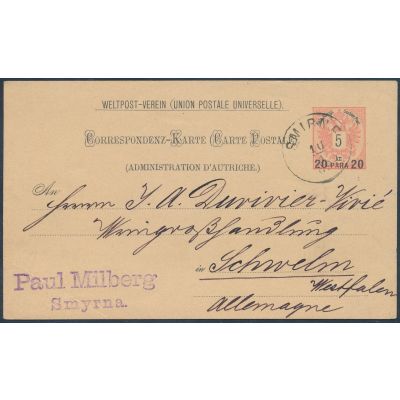 WELTPOST-VEREIN (UNION POSTALE UNIVERSELLE).
CORRESPONDENZ-KARTE (CARTE POSTALE)
(ADMINISTRATION D'AUTRICHE).
5
20 PARA 20
An
Herrn J. A. Duvivier-Vivié
Weingroßhandlung
in Schwelm
Westfalen
Allemagne
Paul Milberg
Smyrna.